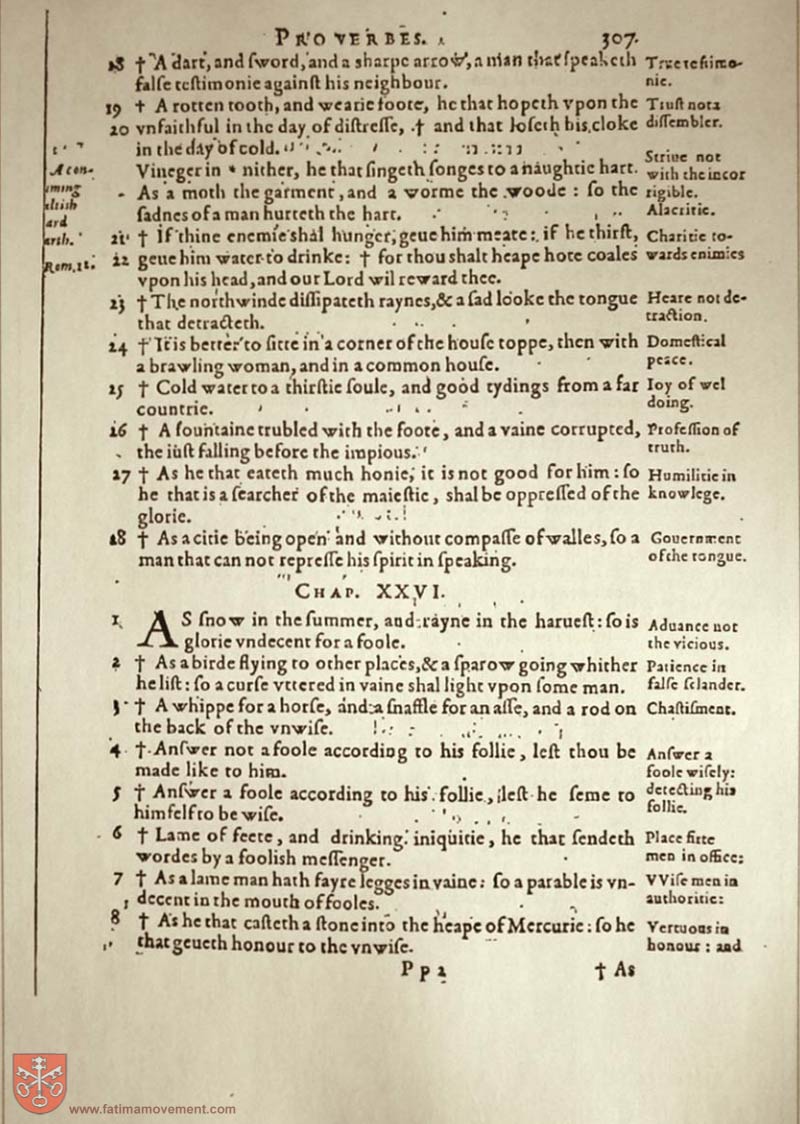 PROVERBES.
307.
18 † A dart, and sword, and a sharpe arrow, a man that speaketh
false testimonie against his neighbour.
19 † A rotten tooth, and wearie foote, he that hopeth vpon the
20 vnfaithful in the day of distresse, † and that loseth his cloke
in the day of cold.
Vineger in * nither, he that singeth songes to a naughtie hart.
As a moth the garment, and a worme the woode: so the
sadnes of a man hurteth the hart.
21 † If thine enemie shal hunger, geue him meate: if he thirst,
22 geue him water to drinke: † for thou shalt heape hote coales
vpon his head, and our Lord wil reward thee.
23 † The northwinde dissipateth raynes, & a sad looke the tongue
that detracteth.
24 † It is better to sitte in a corner of the house toppe, then with
a brawling woman, and in a common house.
25 † Cold water to a thirstie soule, and good tydings from a far
countrie.
26 † A fountaine trubled with the foote, and a vaine corrupted,
the iust falling before the impious.
27 † As he that eateth much honie, it is not good for him: so
he that is a searcher of the maiestie, shal be oppressed of the
glorie.
28 † As a citie being open and without compasse of walles, so a
man that can not represse his spirit in speaking.
CHAP. XXVI.
1. AS snow in the summer, and rayne in the haruest: so is
glorie vndecent for a foole.
2 † As a birde flying to other places, & a sparow going whither
he list: so a curse vttered in vaine shal light vpon some man.
3 † A whippe for a horse, and a snaffle for an asse, and a rod on
the back of the vnwise.
4 † Answer not a foole according to his follie, lest thou be
made like to him.
5 † Answer a foole according to his follie, lest he seme to
himself to be wise.
6 † Lame of feete, and drinking iniquitie, he that sendeth
wordes by a foolish messenger.
7 † As a lame man hath fayre legges in vaine: so a parable is vn-
decent in the mouth of fooles.
8 † As he that casteth a stone into the heape of Mercurie: so he
that geueth honour to the vnwise.
Pp2
† As
A con-
ming
ard
arth.
Rom.12.
True testimo-
nie.
Trust not a
dissembler.
Striue not
with the incor
rigible.
Alacritie.
Charitie to-
wards enimies
Heare not de-
traction.
Domestical
peace.
Ioy of wel
doing.
Profession of
truth.
Humilitie in
knowlege.
Gouernment
of the tongue.
Aduance not
the vicious.
Patience in
false sclander.
Chastisment.
Answer a
foole wisely:
detecting his
follie.
Place fitte
men in office:
VVise men in
authoritie:
Vertuous in
honour: and
www.fatimamovement.com